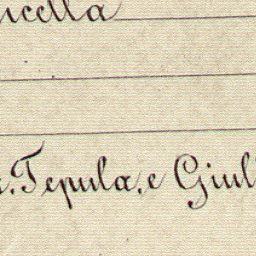 icella
Tepula, e Giul